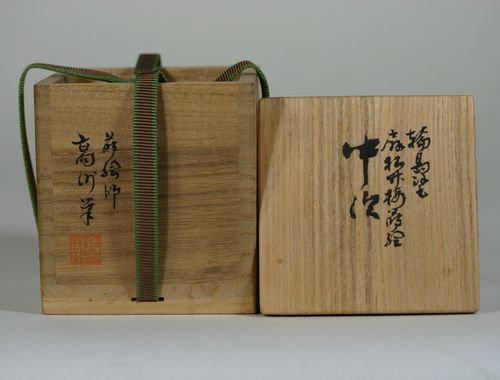 輪島塗
松竹梅蒔絵
中次
蒔絵師
高州筆